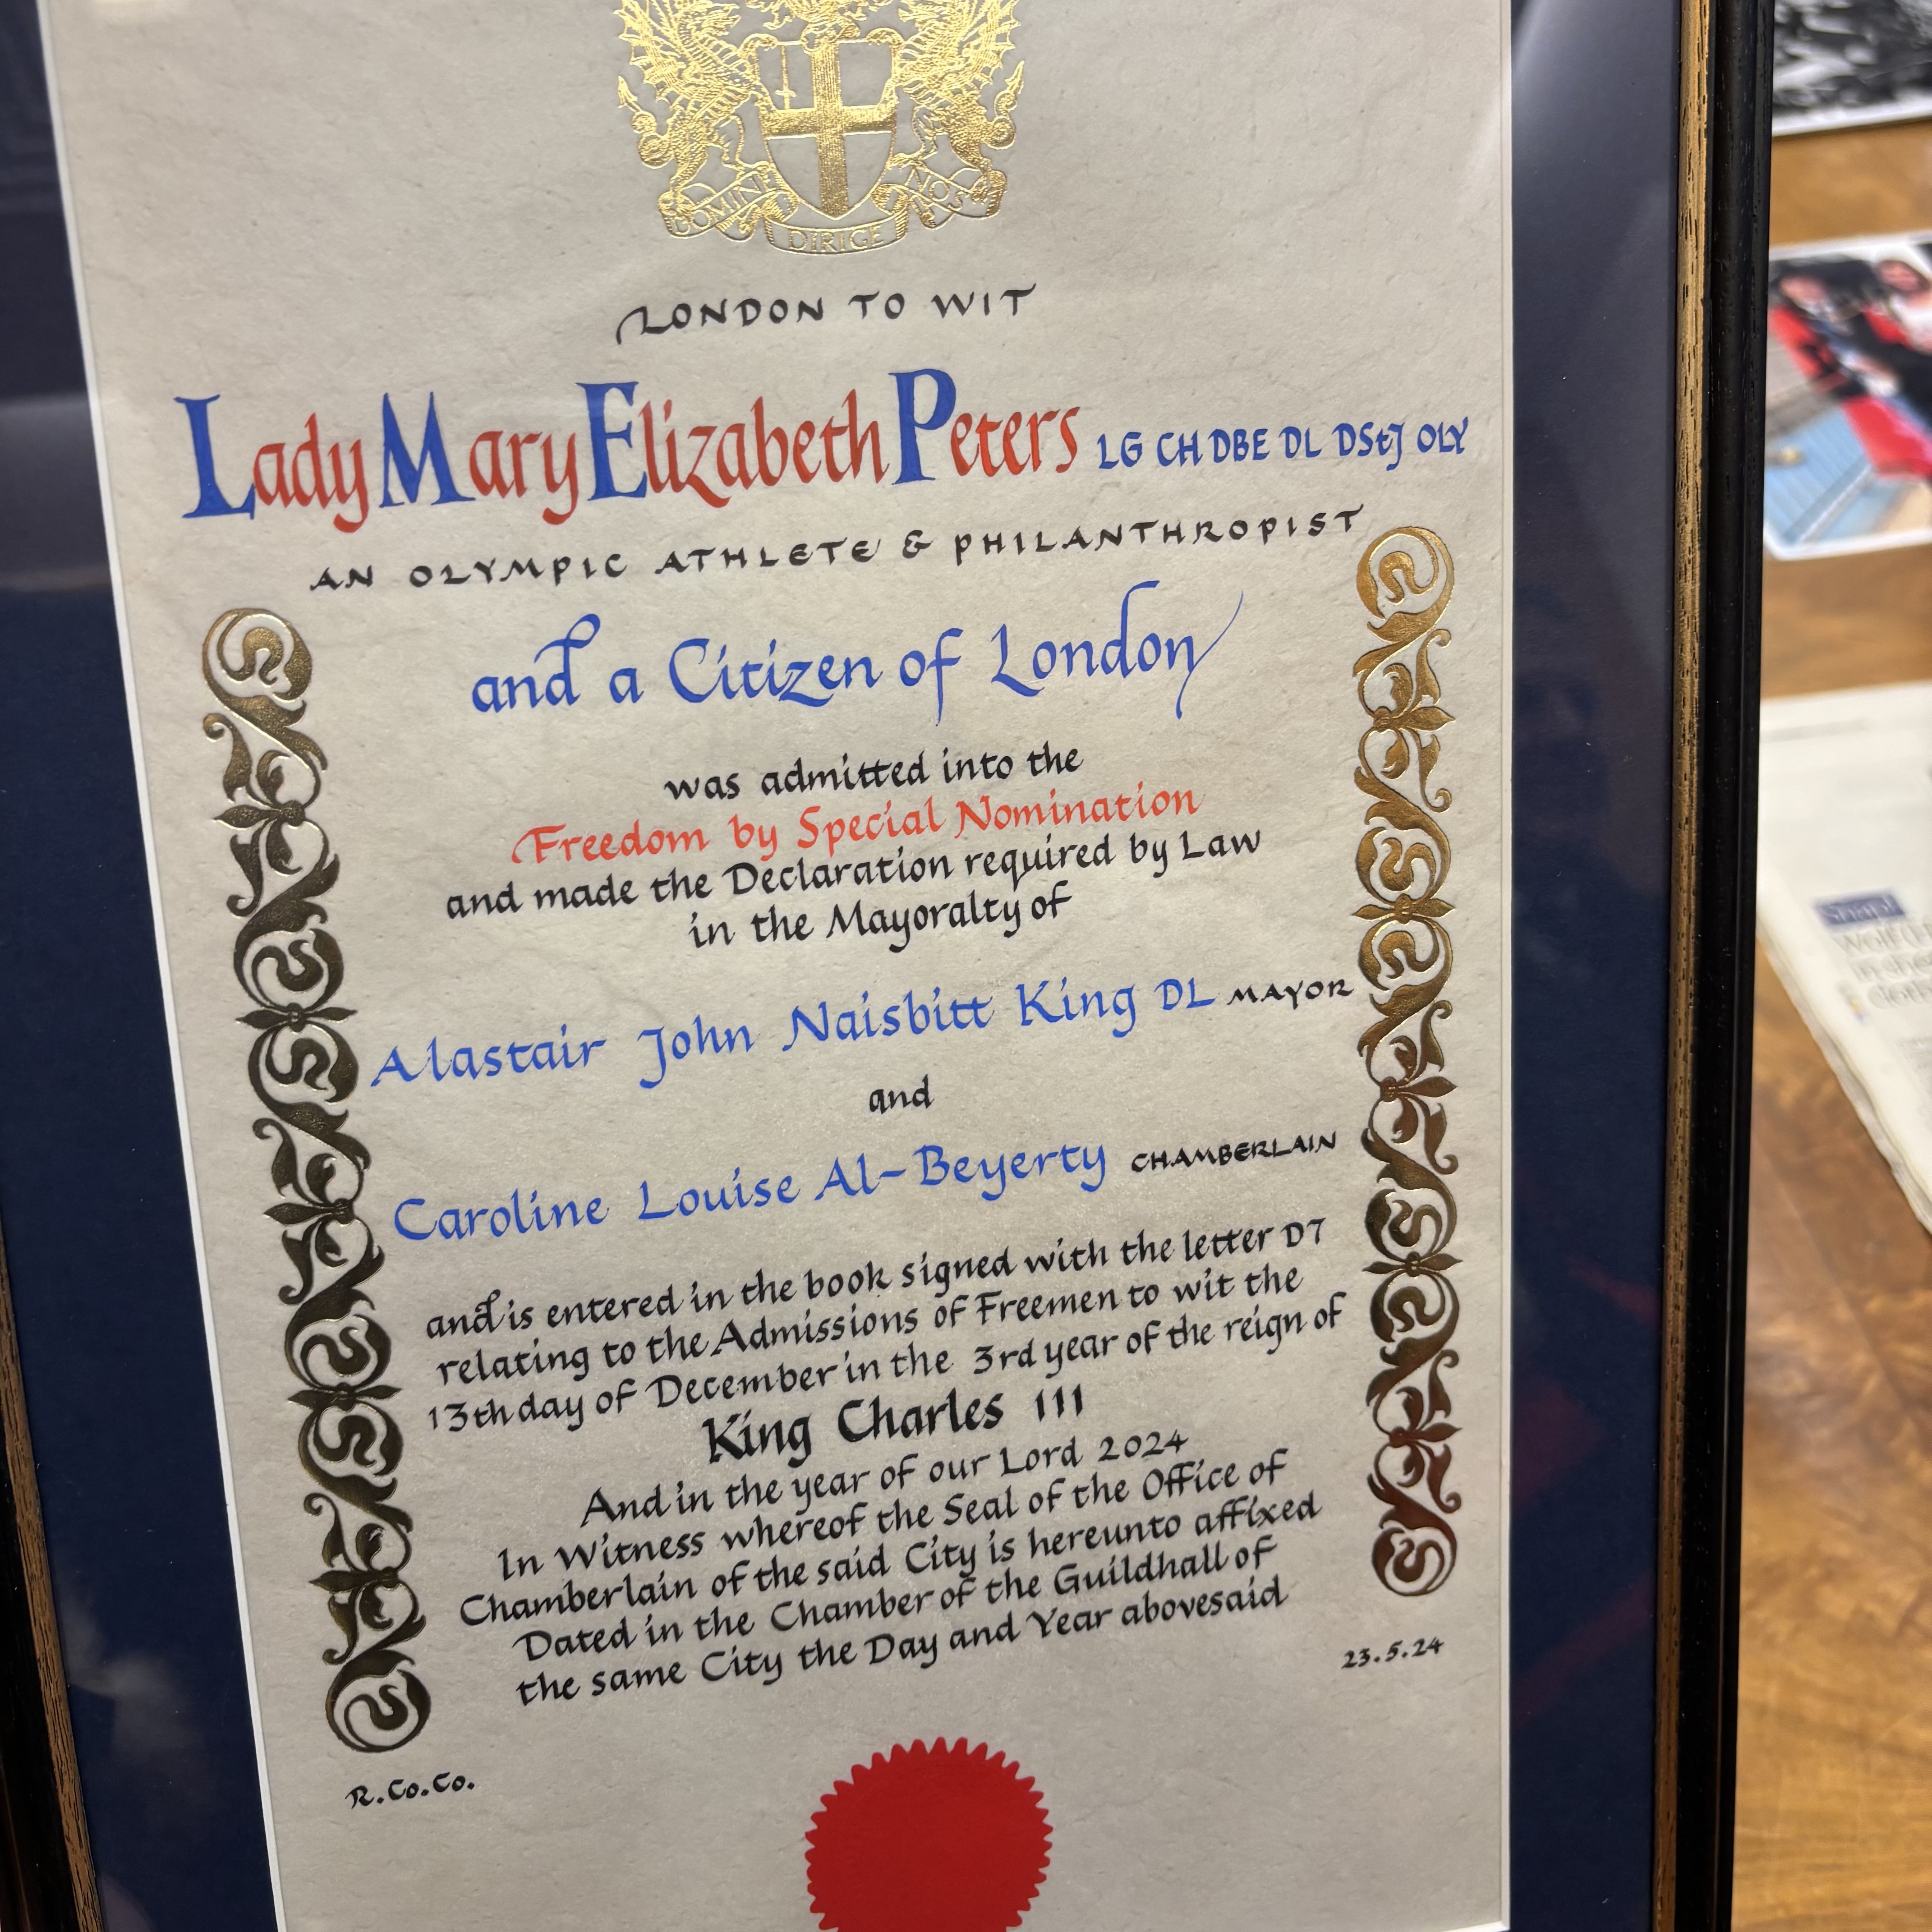 DOMINE DIRIGE NOS
LONDON TO WIT
Lady Mary Elizabeth Peters LG CH DBE DL DStJ OLY
AN OLYMPIC ATHLETE & PHILANTHROPIST
and a Citizen of London
was admitted into the
Freedom by Special Nomination
and made the Declaration required by Law
in the Mayoralty of
Alastair John Naisbitt King DL MAYOR
and
Caroline Louise Al-Beyerty CHAMBERLAIN
and is entered in the book signed with the letter D7
relating to the Admissions of Freemen to wit the
13th day of December in the 3rd year of the reign of
King Charles III
And in the year of our Lord 2024
In Witness whereof the Seal of the Office of
Chamberlain of the said City is hereunto affixed
Dated in the Chamber of the Guildhall of
the same City the Day and Year abovesaid
23.5.24
R.Co.Co.